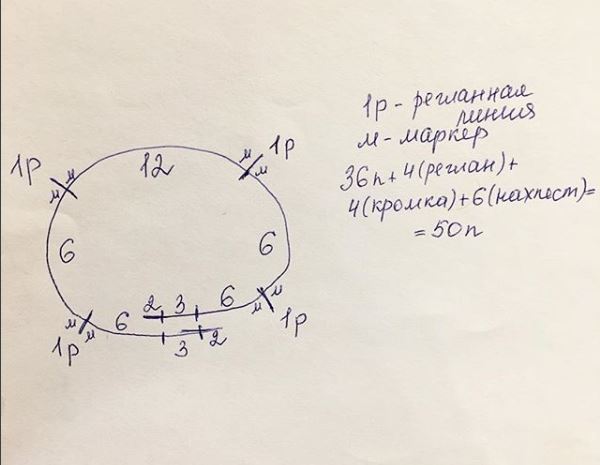 1р - регланная
линия
м - маркер
36п + 4 (реглан) +
4 (кромка) + 6 (нахлест) =
= 50п
1р м м 12 м м 1р
6 6
м м 1р 6 2 3 6 м м 1р
3 2